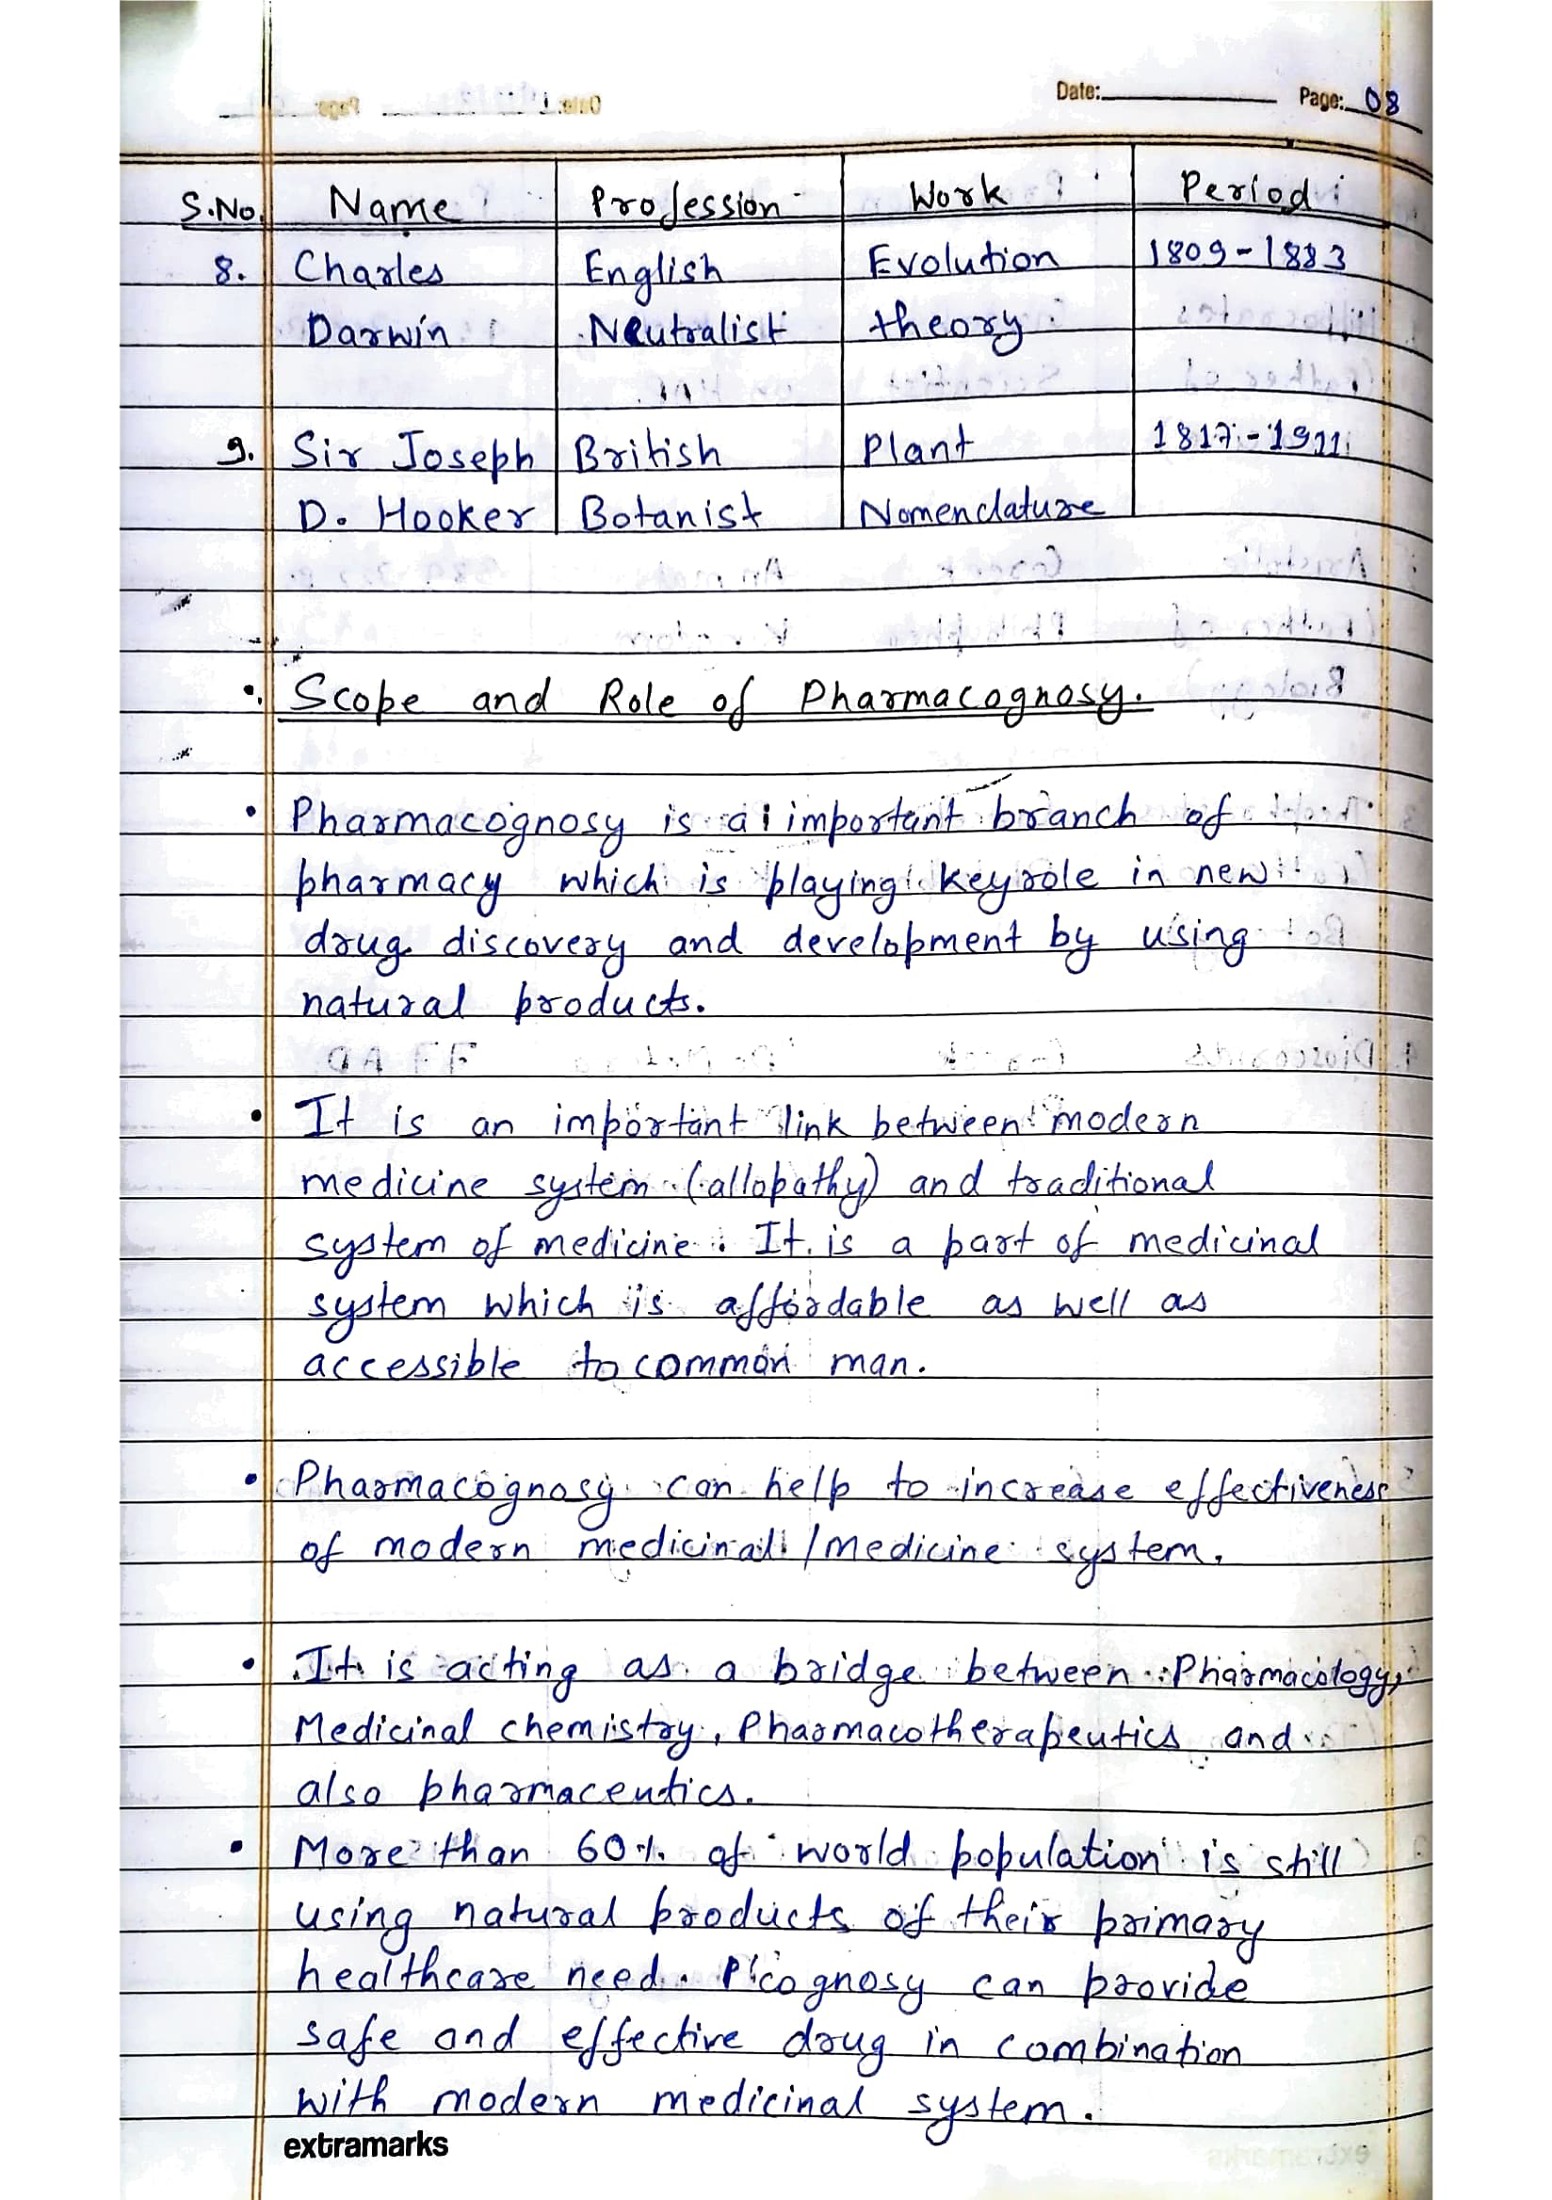 Date: Page: 08
S.No. Name Profession Work Period
8. Charles English Evolution 1809-1883
Darwin Neutralist theory
9. Sir Joseph British Plant 1817-1911
D. Hooker Botanist Nomenclature
• Scope and Role of Pharmacognosy.
• Pharmacognosy is a important branch of
pharmacy which is playing key role in new
drug discovery and development by using
natural products.
• It is an important link between modern
medicine system (allopathy) and traditional
system of medicine. It is a part of medicinal
system which is affordable as well as
accessible to common man.
• Pharmacognosy can help to increase effectiveness
of modern medicinal / medicine system.
• It is acting as a bridge between Pharmacology,
Medicinal chemistry, Pharmacotherapeutics and
also pharmaceutics.
• More than 60% of world population is still
using natural products of their primary
healthcare need. P'cognosy can provide
safe and effective drug in combination
with modern medicinal system.
extramarks